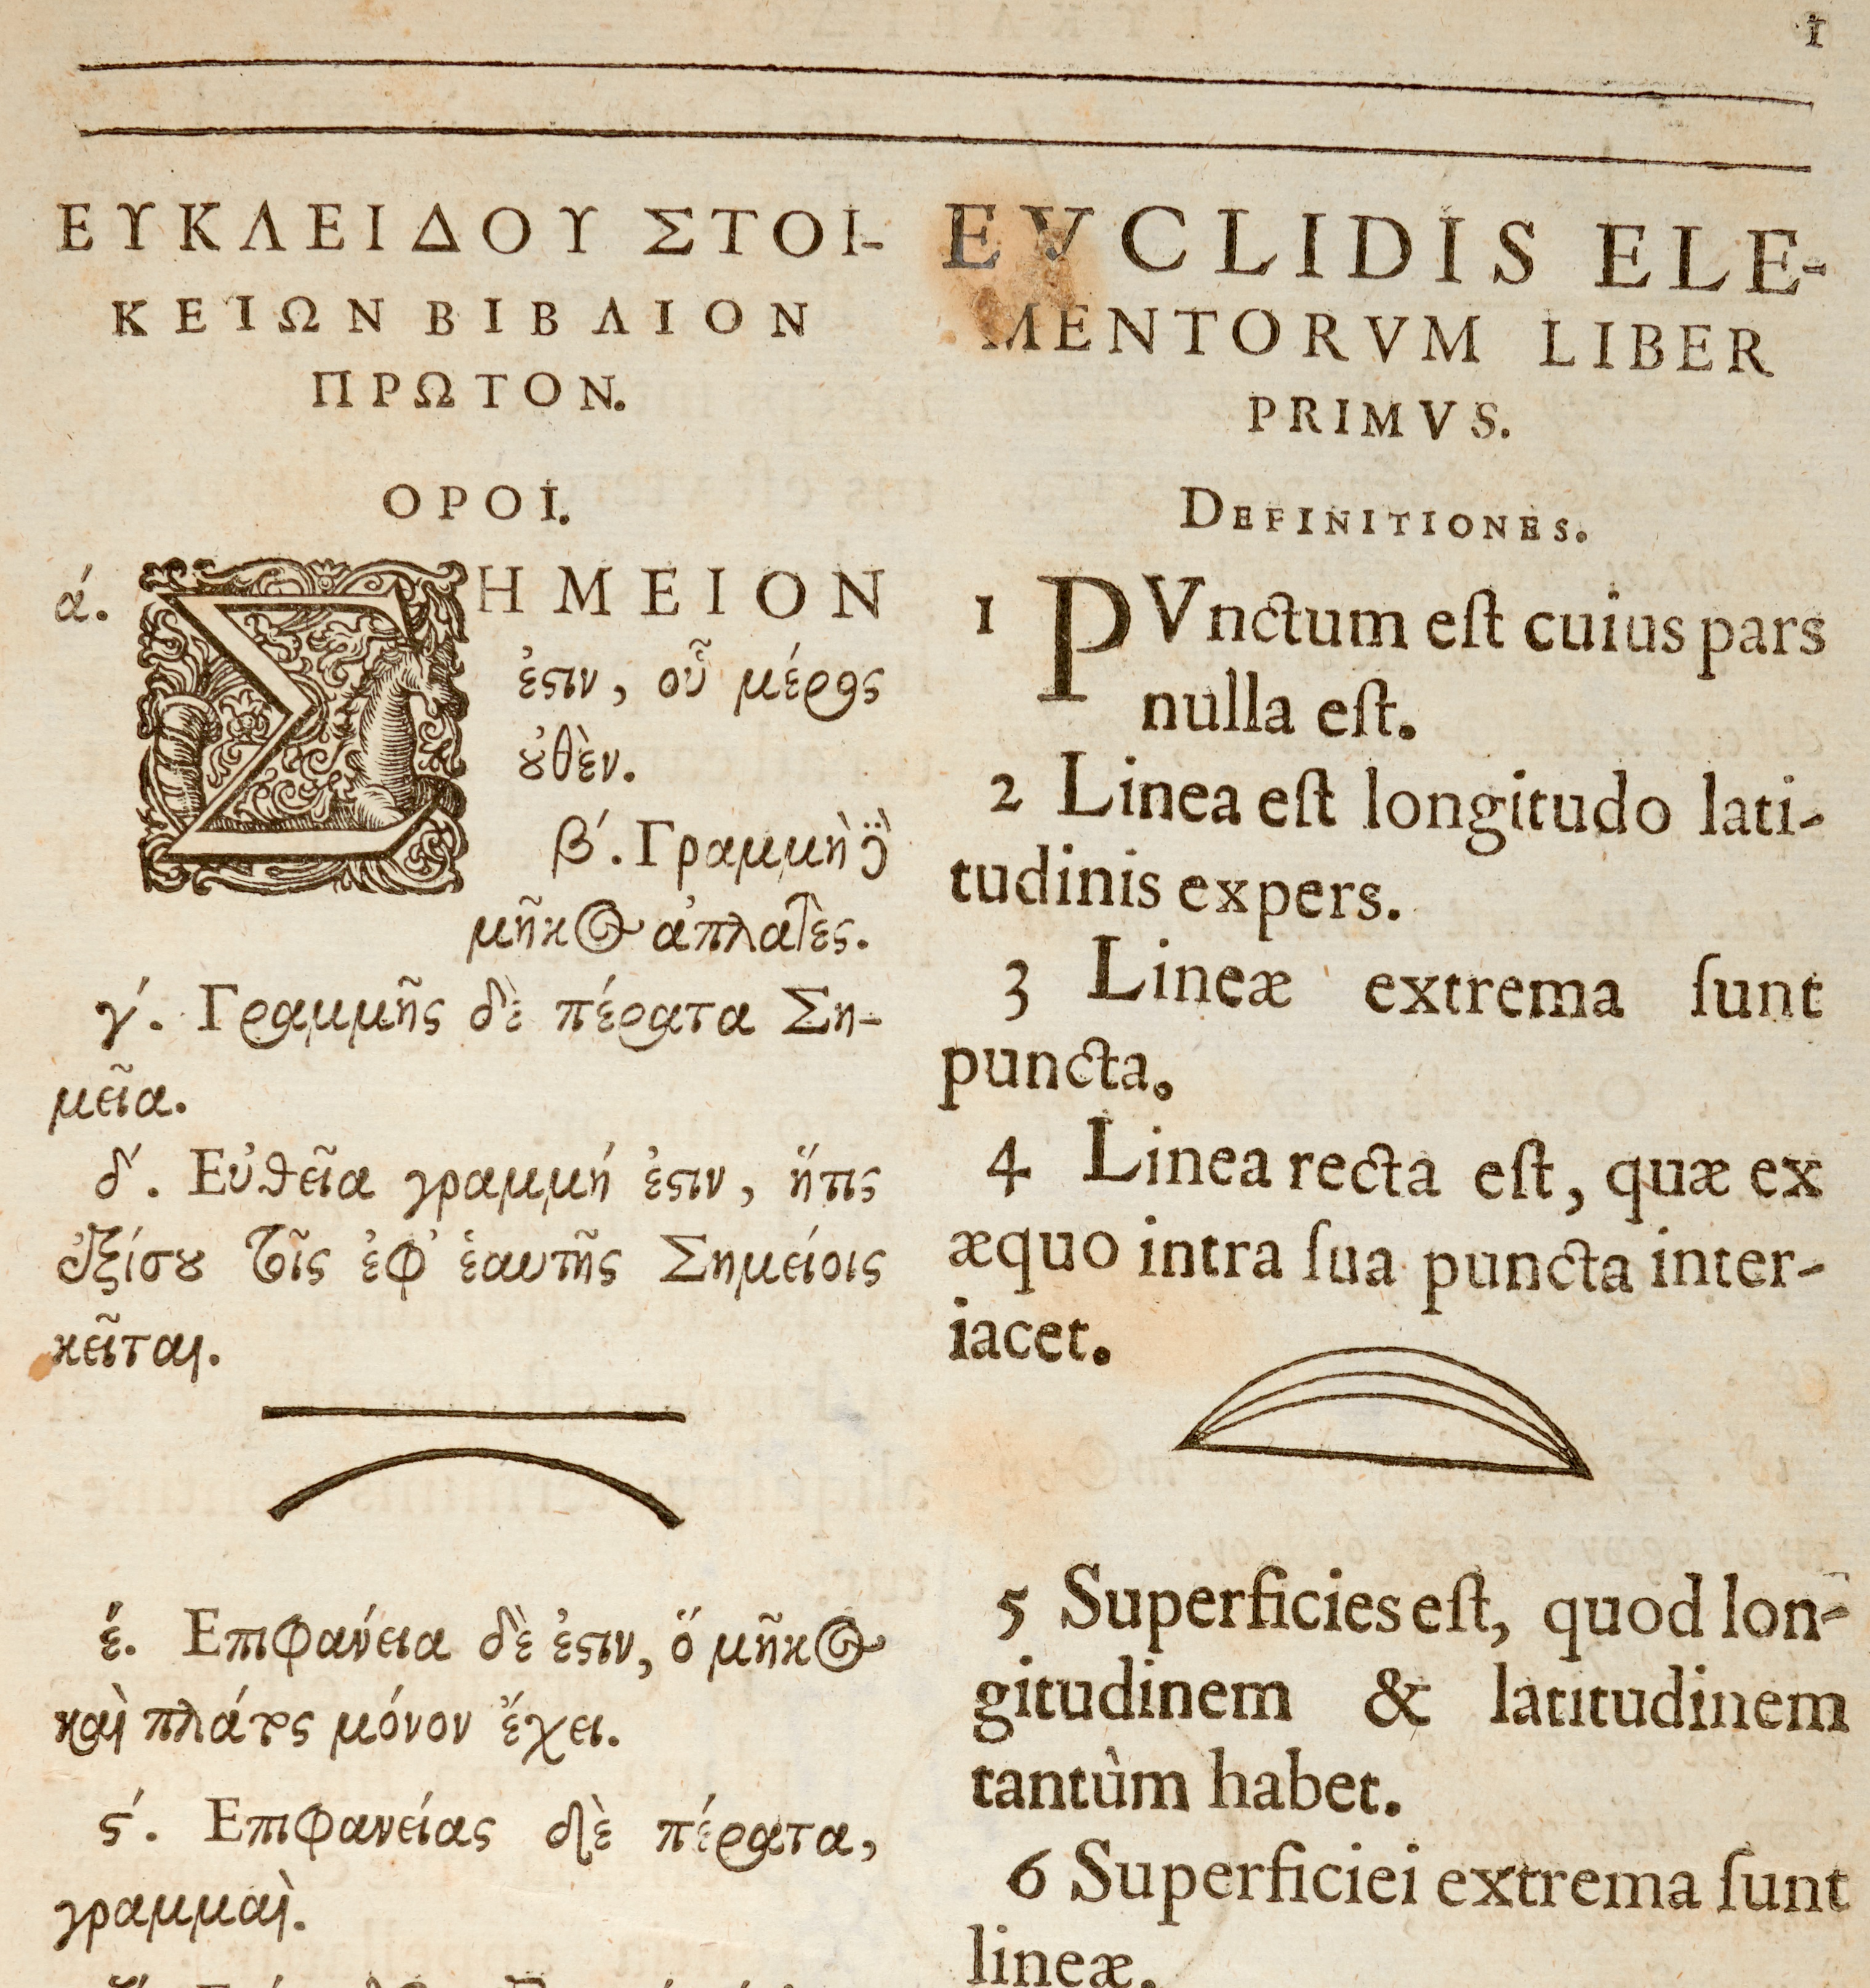 1
ΕΥΚΛΕΙΔΟΥ ΣΤΟΙ-
ΚΕΙΩΝ ΒΙΒΛΙΟΝ
ΠΡΩΤΟΝ.
ΟΡΟΙ.
ά. ΣΗΜΕΙΟΝ
ἐϛιν, οὗ μέρος
ȣ̓θὲν.
β΄. Γραμμὴ δὲ
μῆκος ἀπλατὲς.
γ΄. Γραμμῆς δὲ πέρατα Ση-
μεῖα.
δ΄. Εὐθεῖα γραμμή ἐϛιν, ἥτις
ἐξίσȣ τοῖς ἐφ᾽ ἑαυτῆς Σημείοις
κεῖται.
έ. Επιφανεία δὲ ἐϛιν, ὅ μῆκος
καὶ πλάτος μόνον ἔχει.
ϛ΄. Επιφανείας δὲ πέρατα,
γραμμαὶ.
EVCLIDIS ELE-
MENTORVM LIBER
PRIMVS.
DEFINITIONES.
1 PVnctum eſt cuius pars
nulla eſt.
2 Linea eſt longitudo lati-
tudinis expers.
3 Lineæ extrema ſunt
puncta.
4 Linea recta eſt, quæ ex
æquo intra ſua puncta inter-
iacet.
5 Superficies eſt, quod lon-
gitudinem & latitudinem
tantùm habet.
6 Superficiei extrema ſunt
lineæ.